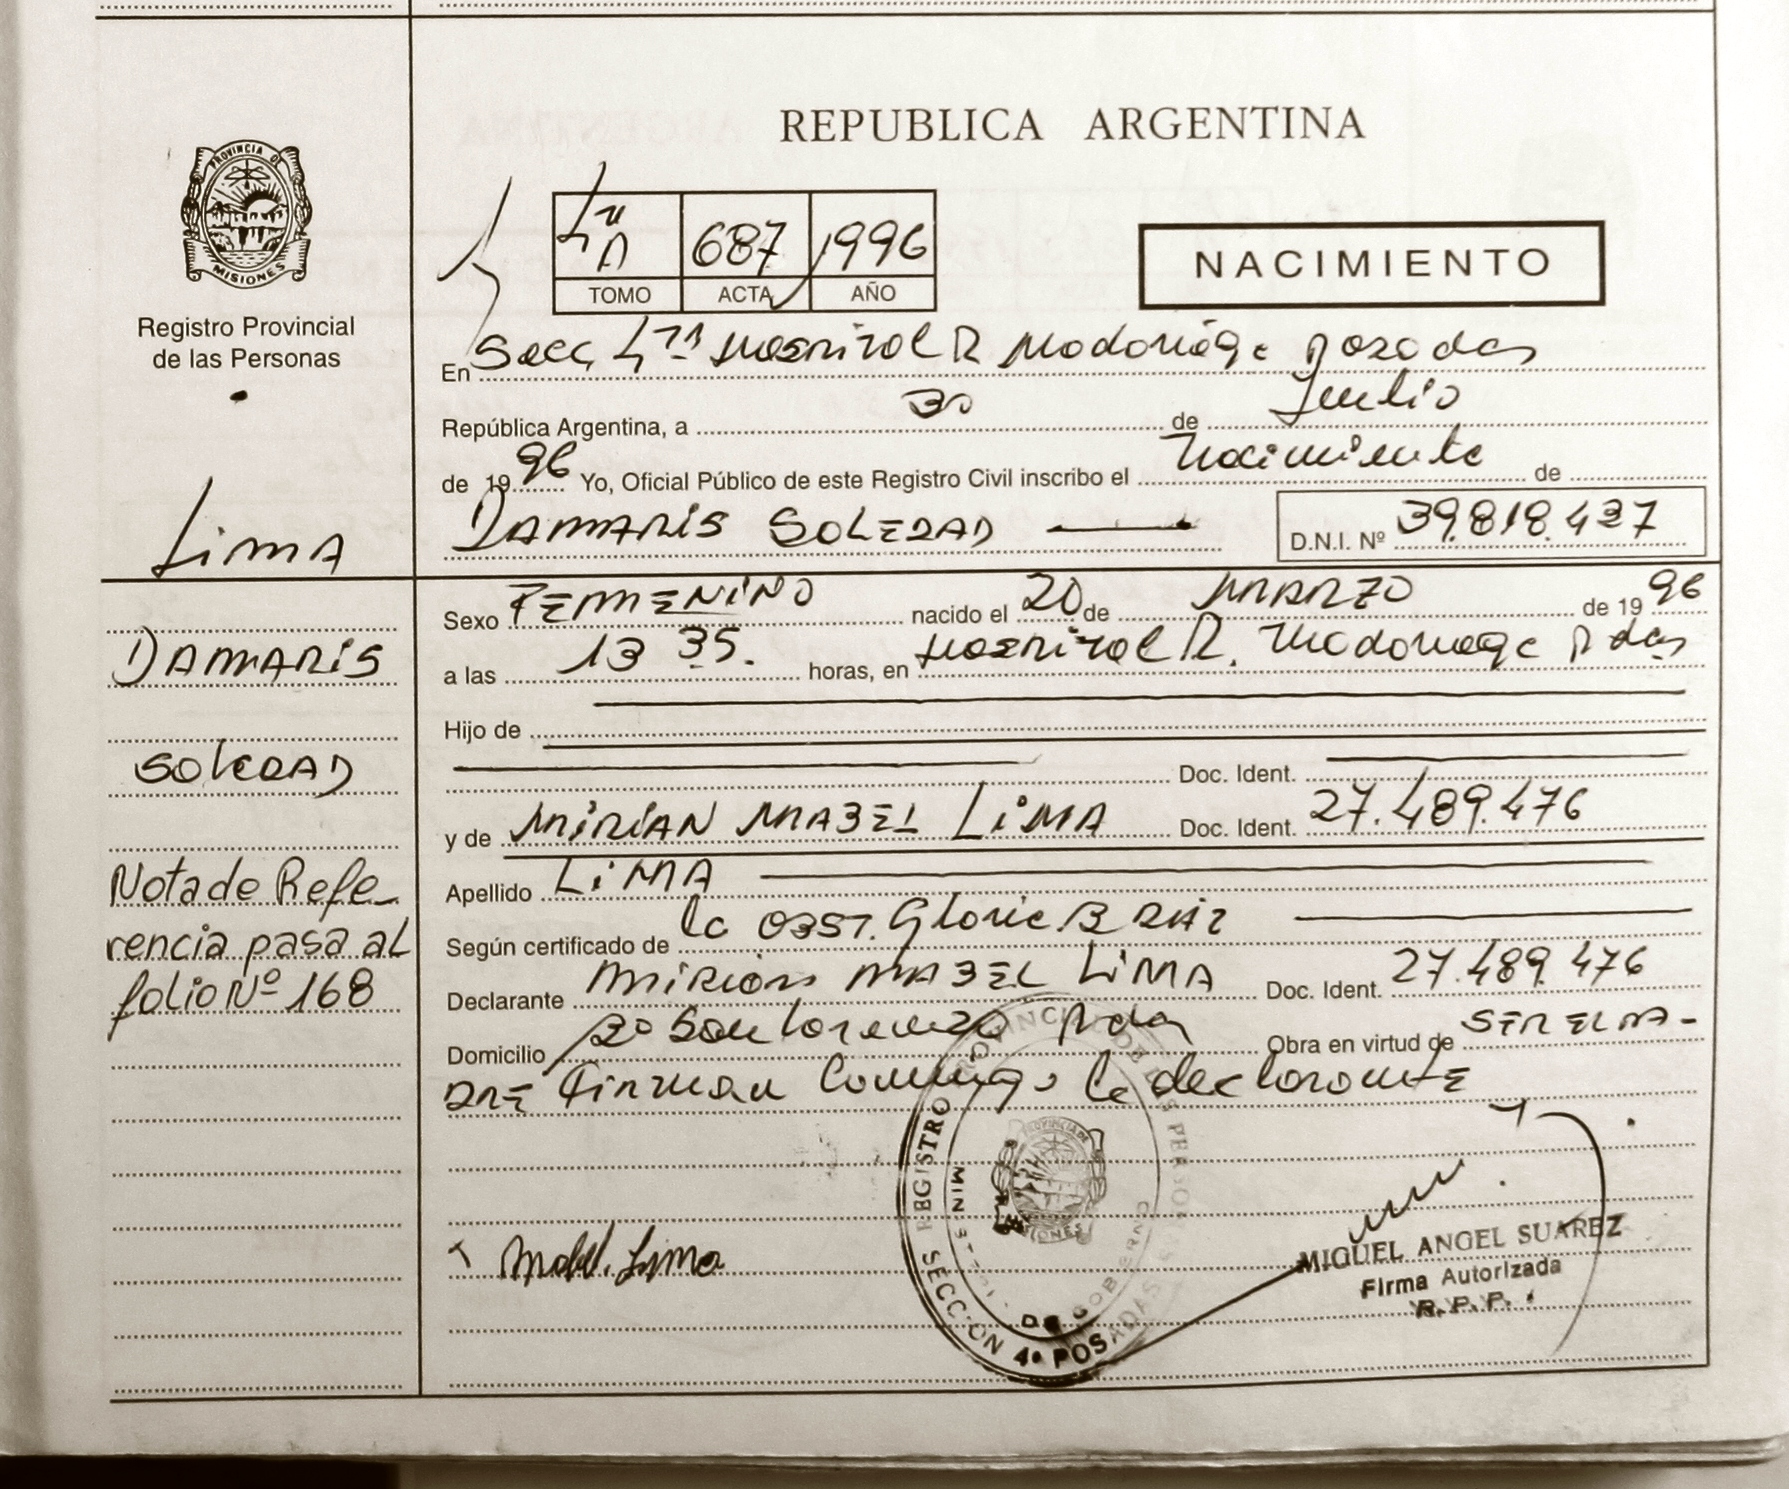 REPUBLICA ARGENTINA
PROVINCIA DE
MISIONES
Registro Provincial
de las Personas
687 1996
TOMO ACTA AÑO
NACIMIENTO
En Secc 4ta Hospital R Madariaga Posadas
República Argentina, a 30 de Julio
de 1996 Yo, Oficial Público de este Registro Civil inscribo el Nacimiento de
DAMARIS SOLEDAD D.N.I. Nº 39.818.437
LIMA
DAMARIS
SOLEDAD
Nota de Refe-
rencia pasa al
folio Nº 168
Sexo FEMENINO nacido el 20 de MARZO de 1996
a las 13 35. horas, en Hospital R. Madariaga Pdas
Hijo de
Doc. Ident.
y de MIRIAN MABEL LIMA Doc. Ident. 27.489.476
Apellido LIMA
Según certificado de la OBST. Gloria B RUIZ
Declarante MIRIAN MABEL LIMA Doc. Ident. 27.489.476
Domicilio Bº San Lorenzo Pdas Obra en virtud de SER EL MA-
DRE Firman Conmigo la declarante
Mabel Lima
REGISTRO PROVINCIAL DE LAS PERSONAS
MINISTERIO DE GOBIERNO
PROVINCIA DE
MISIONES
SECCION 4ª POSADAS
MIGUEL ANGEL SUAREZ
Firma Autorizada
R.P.P.